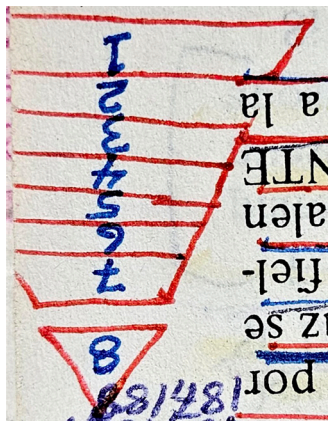 1
2
3
4
5
6
7
8
por
se
fiel-
alen
NTE
a la